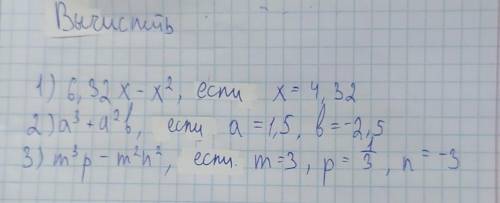 Вычислить
1) 6,32x - x², если x = 4,32
2) a³ + a²b, если a = 1,5, b = -2,5
3) m³p - m²n², если m = 3, p = 1/3, n = -3